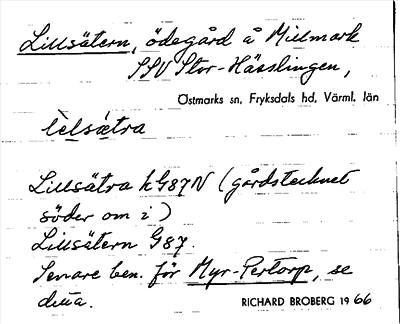 Lillsätern, ödegård å Millmark
SSV Stor-Hässlingen,
Östmarks sn, Fryksdals hd, Värml. län
lèlsǽtra
Lillsätra hG87N (gårdstecknet
söder om i)
Lillsätern G87.
Senare ben. för Myr-Pertorp, se
detta.
RICHARD BROBERG 1966